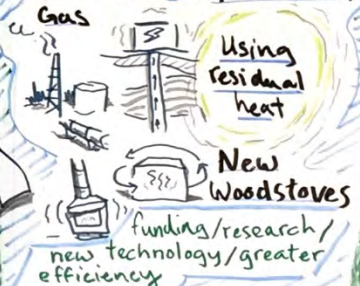 Gas
Using
residual
heat
New
Woodstoves
funding/research/
new technology/greater
efficiency